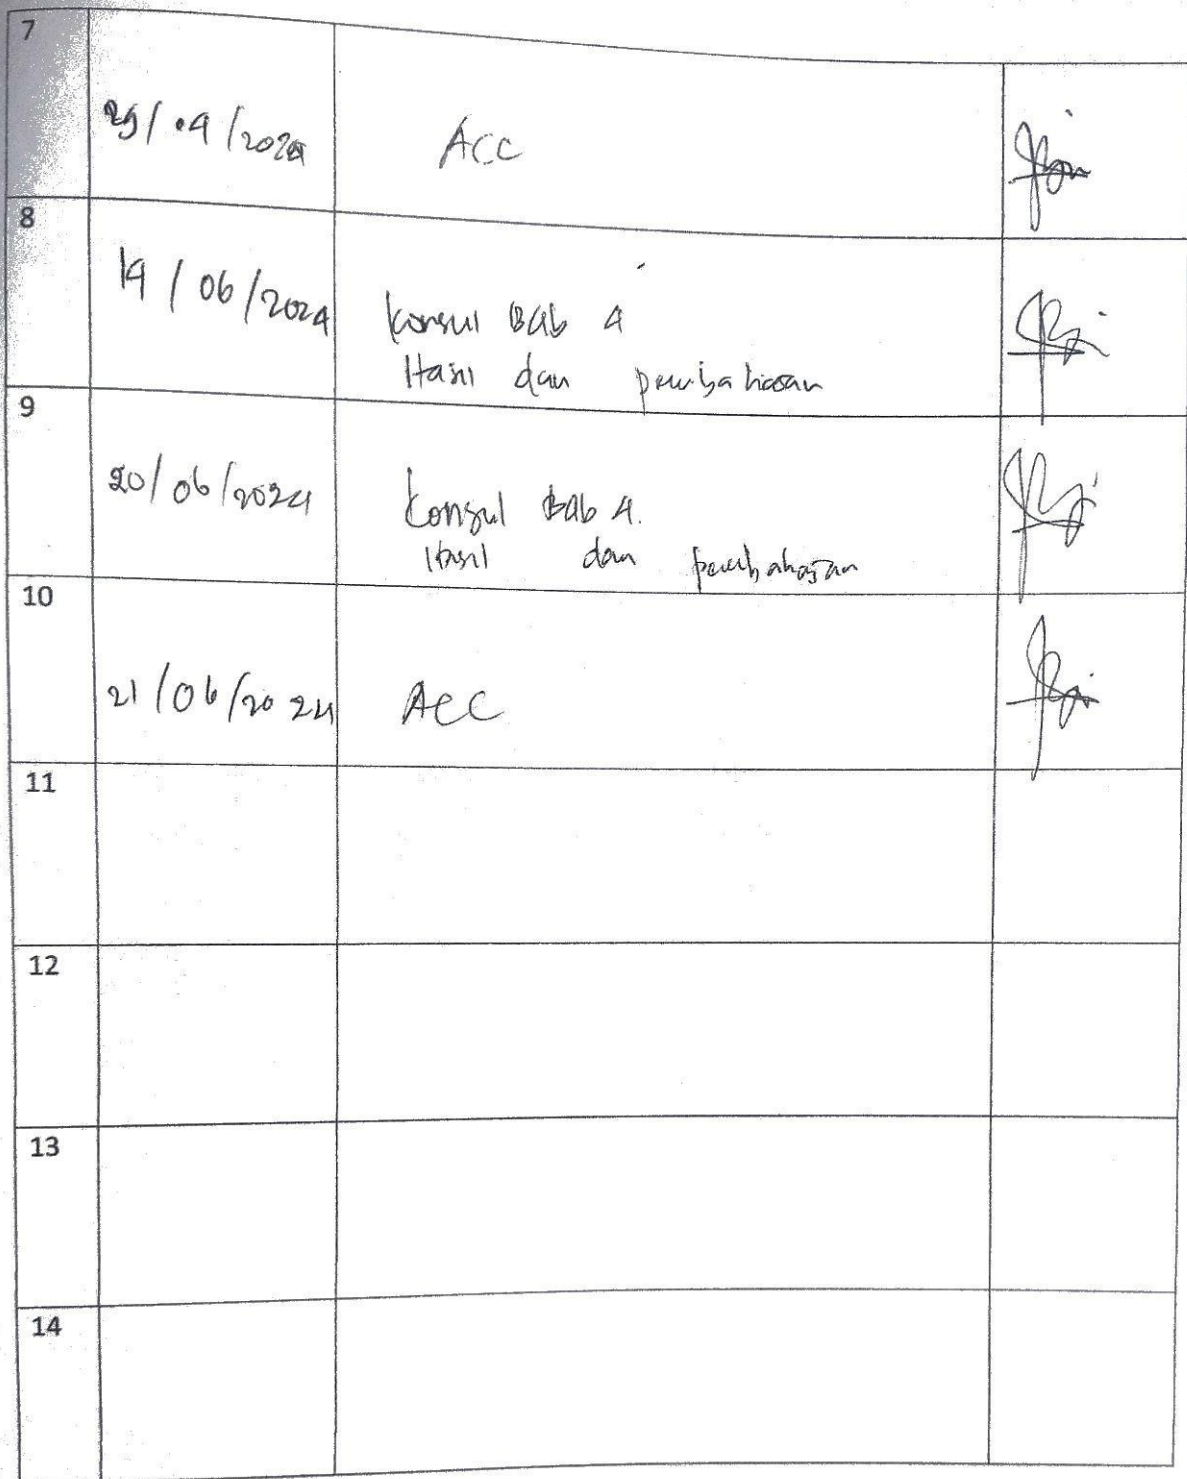 7
29/04/2024 ACC
8
19/06/2024 Konsul Bab 4
Hasil dan pembahasan
9
20/06/2024 Konsul Bab 4.
Hasil dan pembahasan
10
21/06/2024 ACC
11
12
13
14